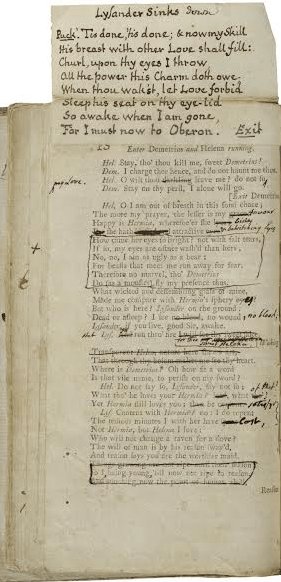 Lysander Sinks down
Puck. 'Tis done, 'tis done; & now my Skill
His breast with other Love shall fill:
Churl, upon thy eyes I throw
All the power this Charm doth owe,
When thou wak'st, let Love forbid
Sleep his seat on thy eye-lid
So awake when I am gone,
For I must now to Oberon. Exit
Enter Demetrius and Helena running.
Hel. Stay, tho' thou kill me, sweet Demetrius!
Dem. I charge thee hence, and do not haunt me thus.
Hel. O wilt thou darkling leave me? do not so.
Dem. Stay on thy peril, I alone will go.
[Exit Demetrius
Hel. O I am out of breath in this fond chace;
The more my prayer, the lesser is my
Happy is Hermia, wheresoe'er she
she hath attractive
How came her eyes so bright? not with salt tears,
If so, my eyes are oftner wash'd than hers.
No, no, I am as ugly as a bear;
For beasts that meet me run away for fear.
Therefore no marvel, tho' Demetrius
Do (as a monster) fly my presence thus.
What wicked and dissembling glass of mine,
Made me compare with Hermia's sphery eyes!
But who is here? Lysander on the ground?
Dead or asleep? I see no wound; no blood,
Lysander, if you live, good Sir, awake.
Lys. run thro' fire
Waking
Transparent Helena
Where is Demetrius? Oh how fit a word
Is that vile name, to perish on my sword?
Hel. Do not say so, Lysander, say not so;
What tho' he loves your Hermia? what
Yet Hermia still loves you;
Lys. Content with Hermia? no: I do repent
The tedious minutes I with her have lost,
Not Hermia, but Helena I love:
Who will not change a raven for a dove?
The will of man is by his reason sway'd,
And reason says you are the worthier maid.
So I, being young, till now not ripe to reason,